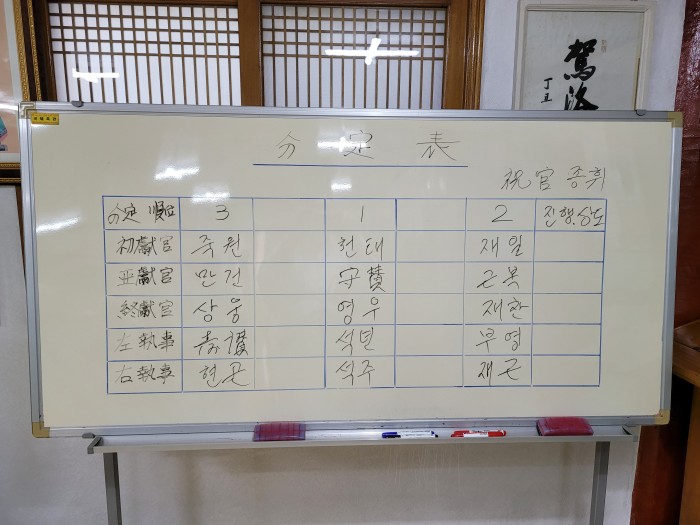 分定表
祝官 종휘
分定 順位 3 1 2 진행.상도
初獻官 죽원 헌태 재일
亞獻官 만건 守贊 근복
終獻官 상웅 영우 재한
左執事 석년 무영
右執事 현근 석주 재근
丁丑